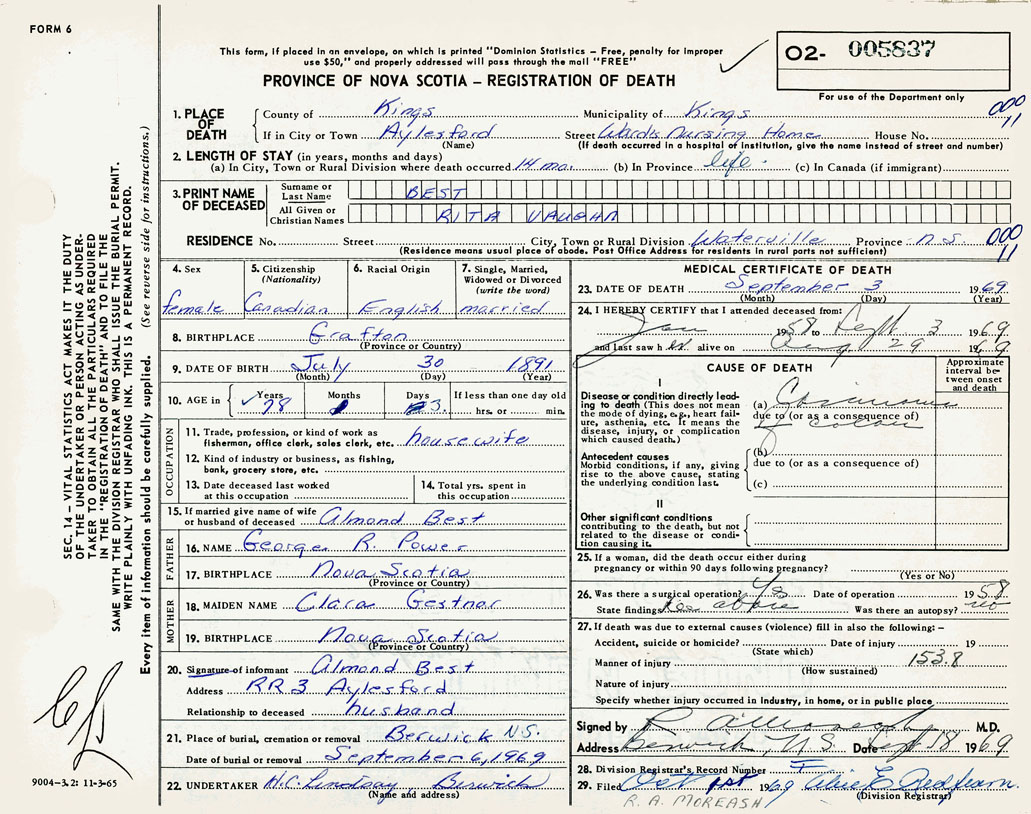 FORM 6
This form, if placed in an envelope, on which is printed "Dominion Statistics – Free, penalty for improper
use $50," and properly addressed will pass through the mail "FREE"
PROVINCE OF NOVA SCOTIA – REGISTRATION OF DEATH
O2- 005837
For use of the Department only
000
11
1. PLACE OF DEATH
County of Kings Municipality of Kings
If in City or Town Aylesford Street Wards Nursing Home House No.
(Name) (If death occurred in a hospital or institution, give the name instead of street and number)
2. LENGTH OF STAY (in years, months and days)
(a) In City, Town or Rural Division where death occurred 14 mo. (b) In Province life. (c) In Canada (if immigrant)
3. PRINT NAME OF DECEASED
Surname or Last Name BEST
All Given or Christian Names RITA VAUGHN
RESIDENCE No. Street City, Town or Rural Division Waterville Province N.S. 000
11
(Residence means usual place of abode. Post Office Address for residents in rural parts not sufficient)
4. Sex female
5. Citizenship (Nationality) Canadian
6. Racial Origin English
7. Single, Married, Widowed or Divorced (write the word) married
8. BIRTHPLACE Grafton
(Province or Country)
9. DATE OF BIRTH July 30 1891
(Month) (Day) (Year)
10. AGE in Years 78 Months 1 Days 3. If less than one day old
hrs. or min.
OCCUPATION
11. Trade, profession, or kind of work as
fisherman, office clerk, sales clerk, etc. housewife
12. Kind of industry or business, as fishing,
bank, grocery store, etc.
13. Date deceased last worked
at this occupation
14. Total yrs. spent in
this occupation
15. If married give name of wife
or husband of deceased Almond Best
FATHER
16. NAME George R. Power
17. BIRTHPLACE Nova Scotia
(Province or Country)
MOTHER
18. MAIDEN NAME Clara Gestnor
19. BIRTHPLACE Nova Scotia
(Province or Country)
20. Signature of informant Almond Best
Address RR3 Aylesford
Relationship to deceased husband
21. Place of burial, cremation or removal Berwick N.S.
Date of burial or removal September 6, 1969
22. UNDERTAKER H.C. Lindsay Berwick
(Name and address)
MEDICAL CERTIFICATE OF DEATH
23. DATE OF DEATH September 3 1969.
(Month) (Day) (Year)
24. I HEREBY CERTIFY that I attended deceased from:
Jan 1958 to Sept 3 1969
and last saw her alive on Aug 29 1969
CAUSE OF DEATH
Approximate interval between onset and death
I
Disease or condition directly leading
to death (This does not mean
the mode of dying, e.g., heart failure,
asthenia, etc. It means the
disease, injury, or complication
which caused death.)
(a) Carcinoma
due to (or as a consequence of)
of colon
Antecedent causes
Morbid conditions, if any, giving
rise to the above cause, stating
the underlying condition last.
(b)
due to (or as a consequence of)
(c)
II
Other significant conditions
contributing to the death, but not
related to the disease or condition
causing it.
25. If a woman, did the death occur either during
pregnancy or within 90 days following pregnancy?
(Yes or No)
26. Was there a surgical operation? Yes Date of operation 1958.
State findings see above Was there an autopsy? no
27. If death was due to external causes (violence) fill in also the following: –
Accident, suicide or homicide? Date of injury 19
(State which)
Manner of injury 153.8
(How sustained)
Nature of injury
Specify whether injury occurred in industry, in home, or in public place
Signed by R A Moreash M.D.
Address Berwick, N.S. Date Sept 18 1969
28. Division Registrar's Record Number
29. Filed Oct 1st 1969
(Division Registrar)
R. A. MOREASH
SEC. 14 – VITAL STATISTICS ACT MAKES IT THE DUTY
OF THE UNDERTAKER OR PERSON ACTING AS UNDER-
TAKER TO OBTAIN ALL THE PARTICULARS REQUIRED
IN THE "REGISTRATION OF DEATH" AND TO FILE THE
SAME WITH THE DIVISION REGISTRAR WHO SHALL ISSUE THE BURIAL PERMIT.
WRITE PLAINLY WITH UNFADING INK. THIS IS A PERMANENT RECORD.
Every item of information should be carefully supplied. (See reverse side for instructions.)
9004-3.2: 11-3-65